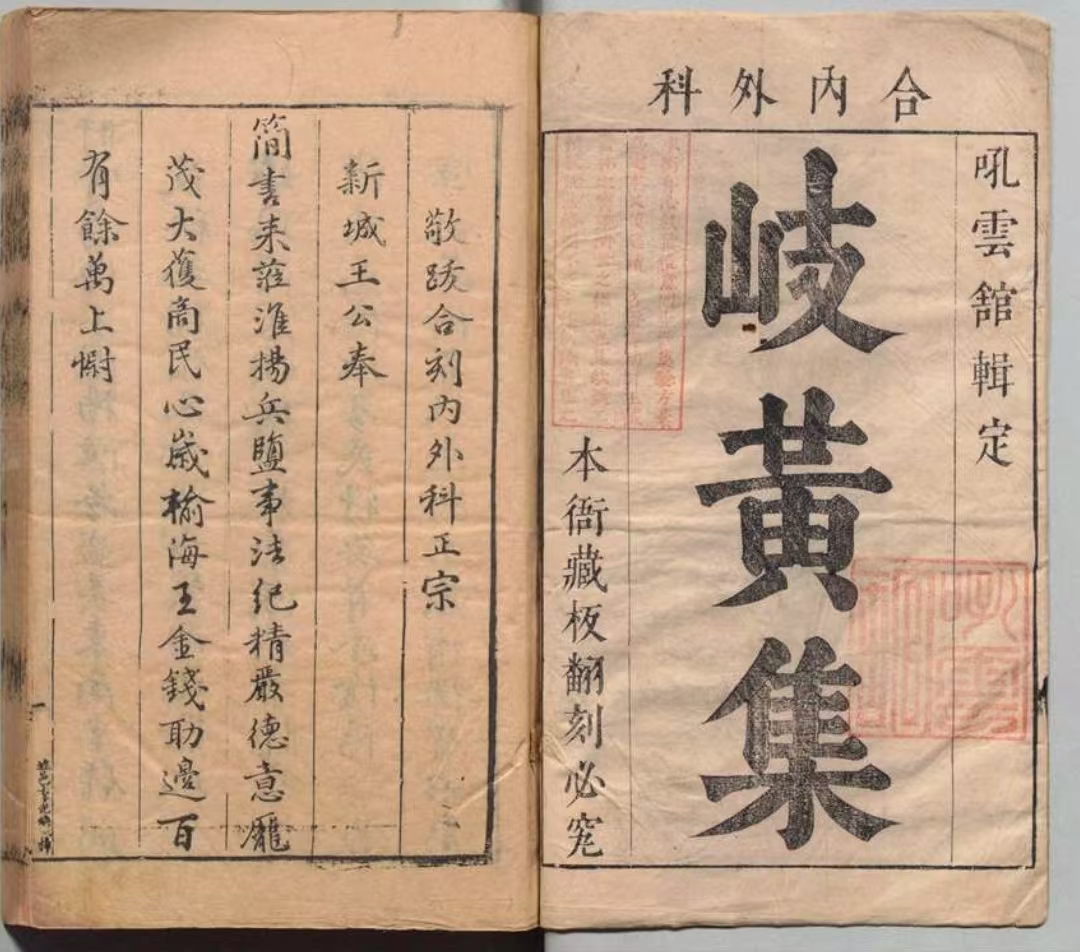 合內外科
吼雲館輯定
岐黃集
本衙藏板翻刻必究
敬跋合刻内外科正宗
新城王公奉
簡書来蒞淮揚兵鹽事法紀精嚴德意龐
茂大獲商民心歲榆海王金錢助邊百
有餘萬上慰